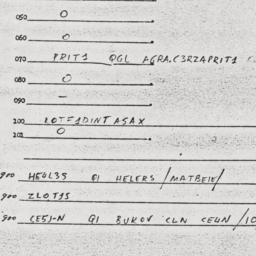 050 O
060 O
070 PRIT1 QGL AGRA.C3RZAPRIT1
080 O
090 –
100 LOT=1DINTASAX
201 O
900 HE4L35 QI HELERS/MATBEIE/
900 ZLOT35
900 CE5J-N QI BUKOV CLN CE4N/10